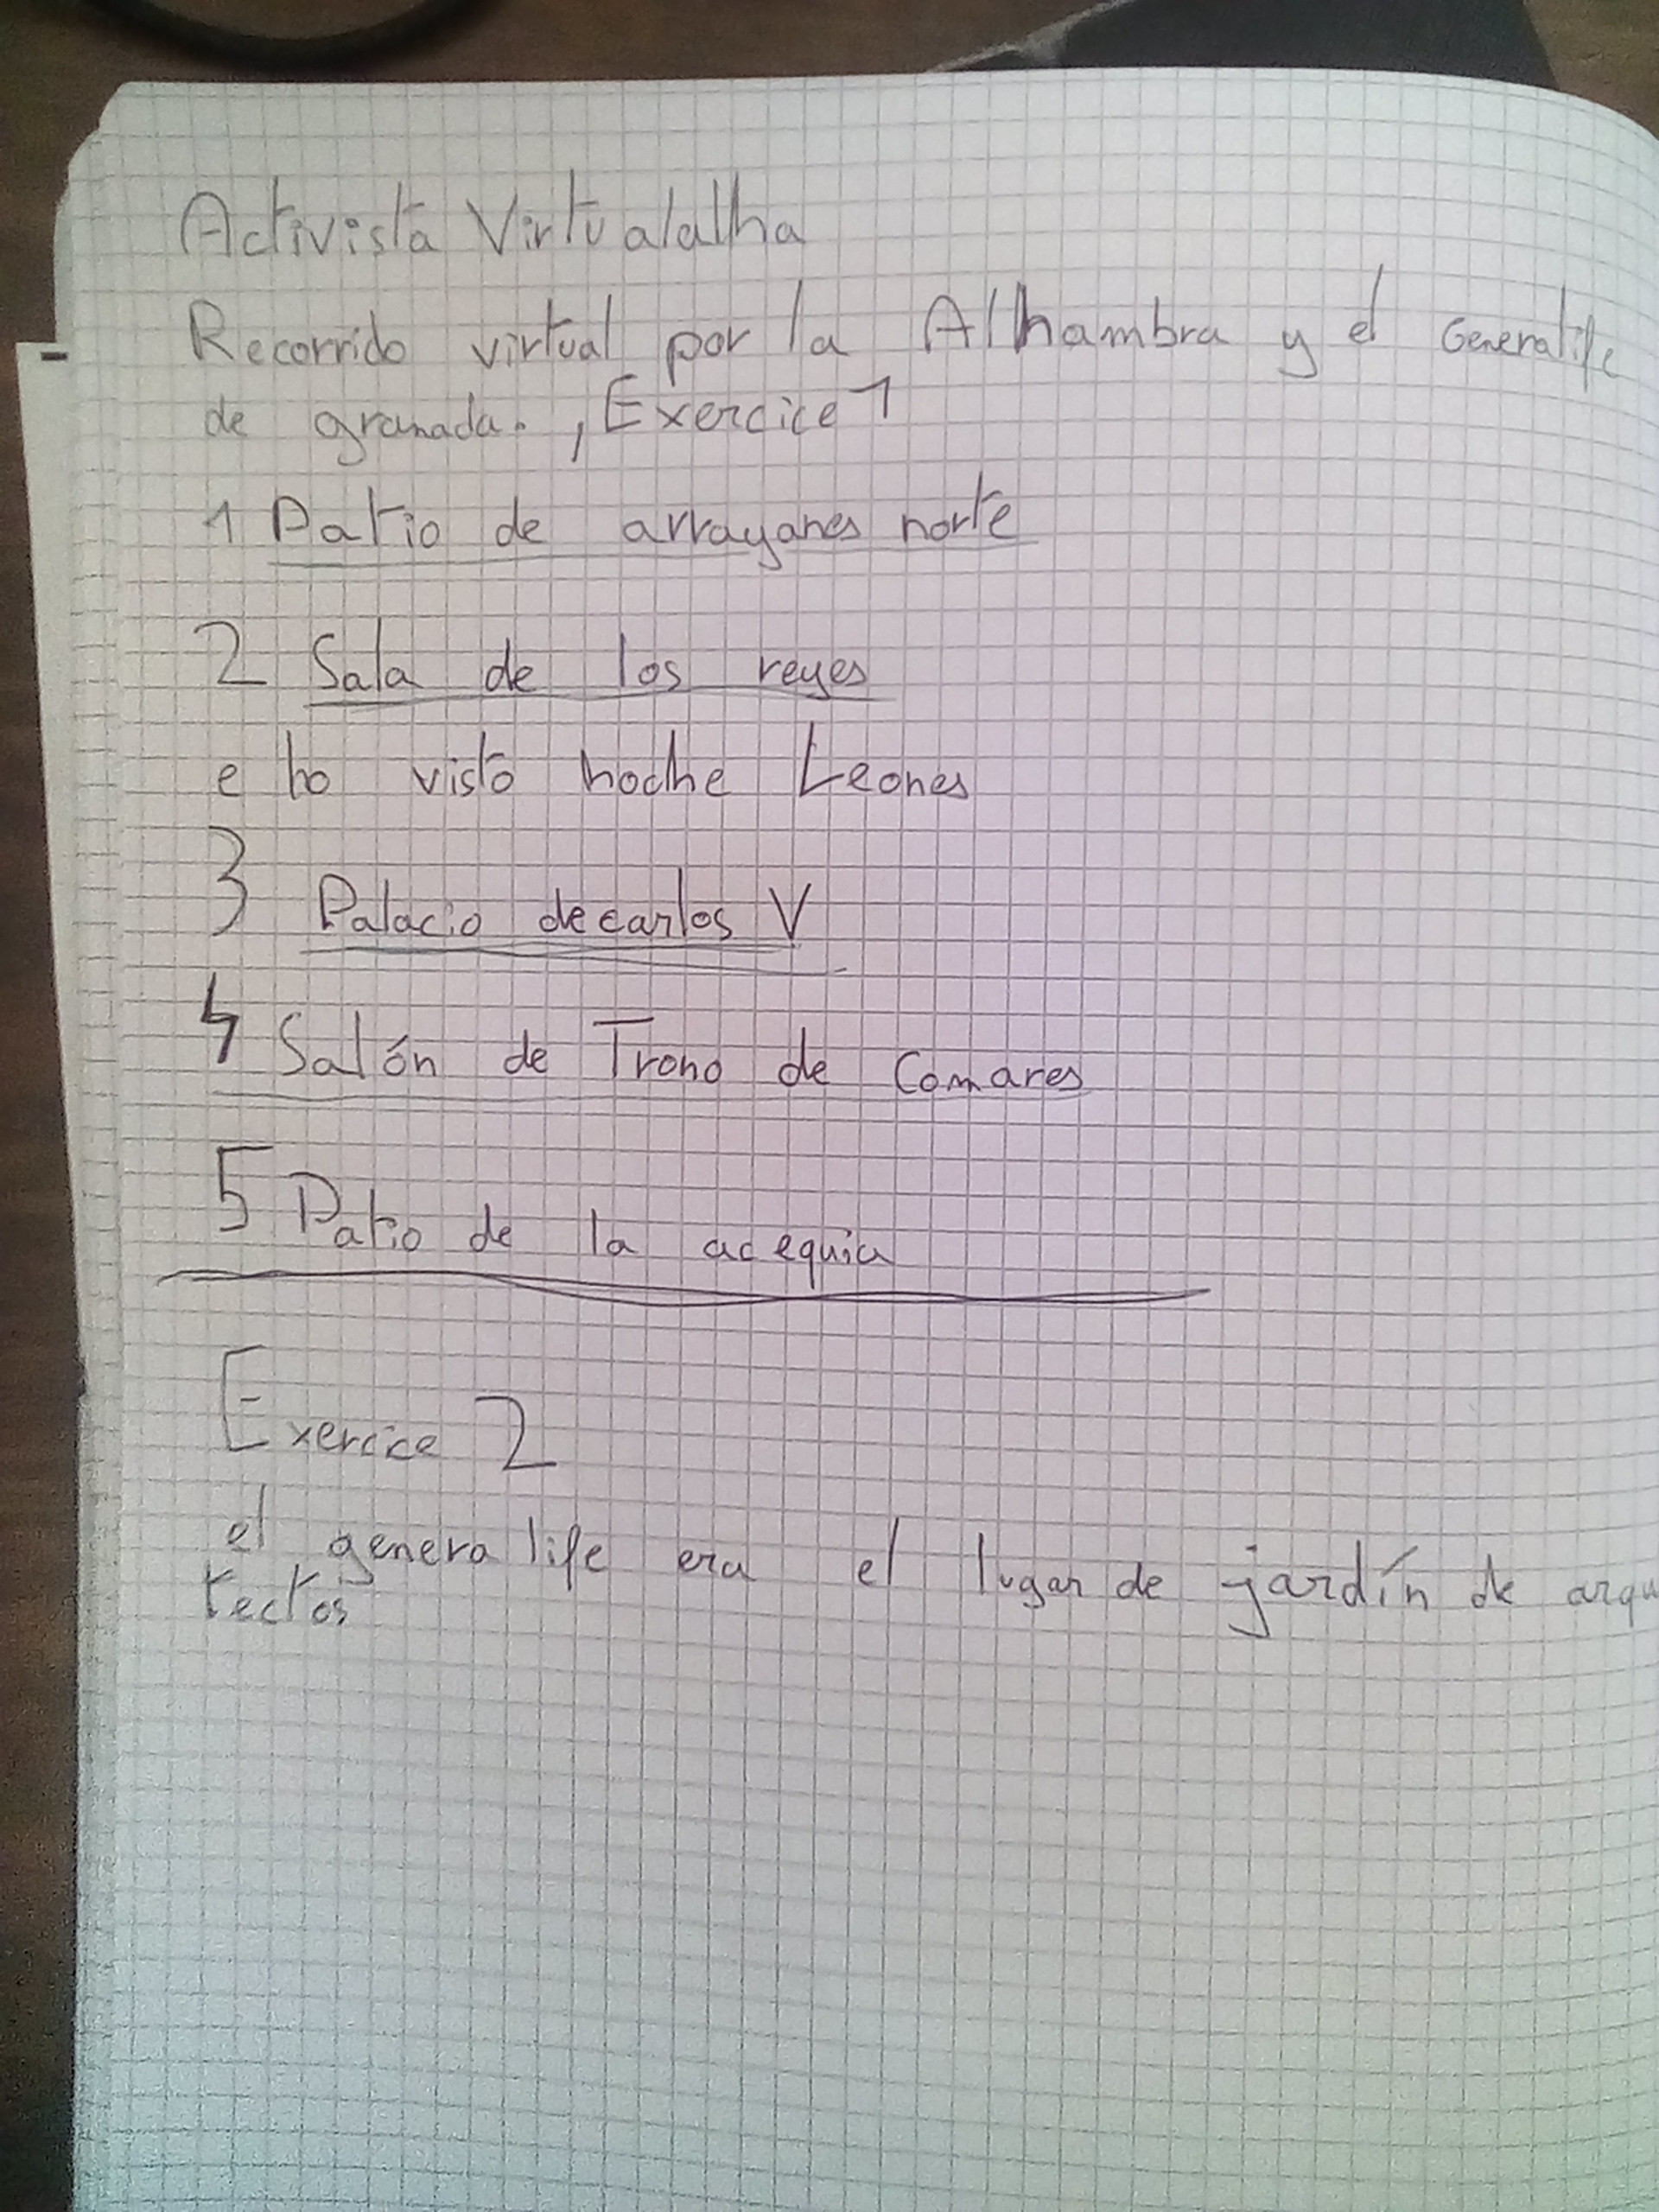 Activista Virtualalha
Recorrido virtual por la Alhambra y el Generalife
de granada. , Exercice 1
1 Patio de arrayanes norte
2 Sala de los reyes
e ho visto noche Leones
3 Palacio de carlos V
4 Salón de Trono de Comares
5 Patio de la acequia
Exercice 2
el generalife era el lugar de jardín de arqui
tectos